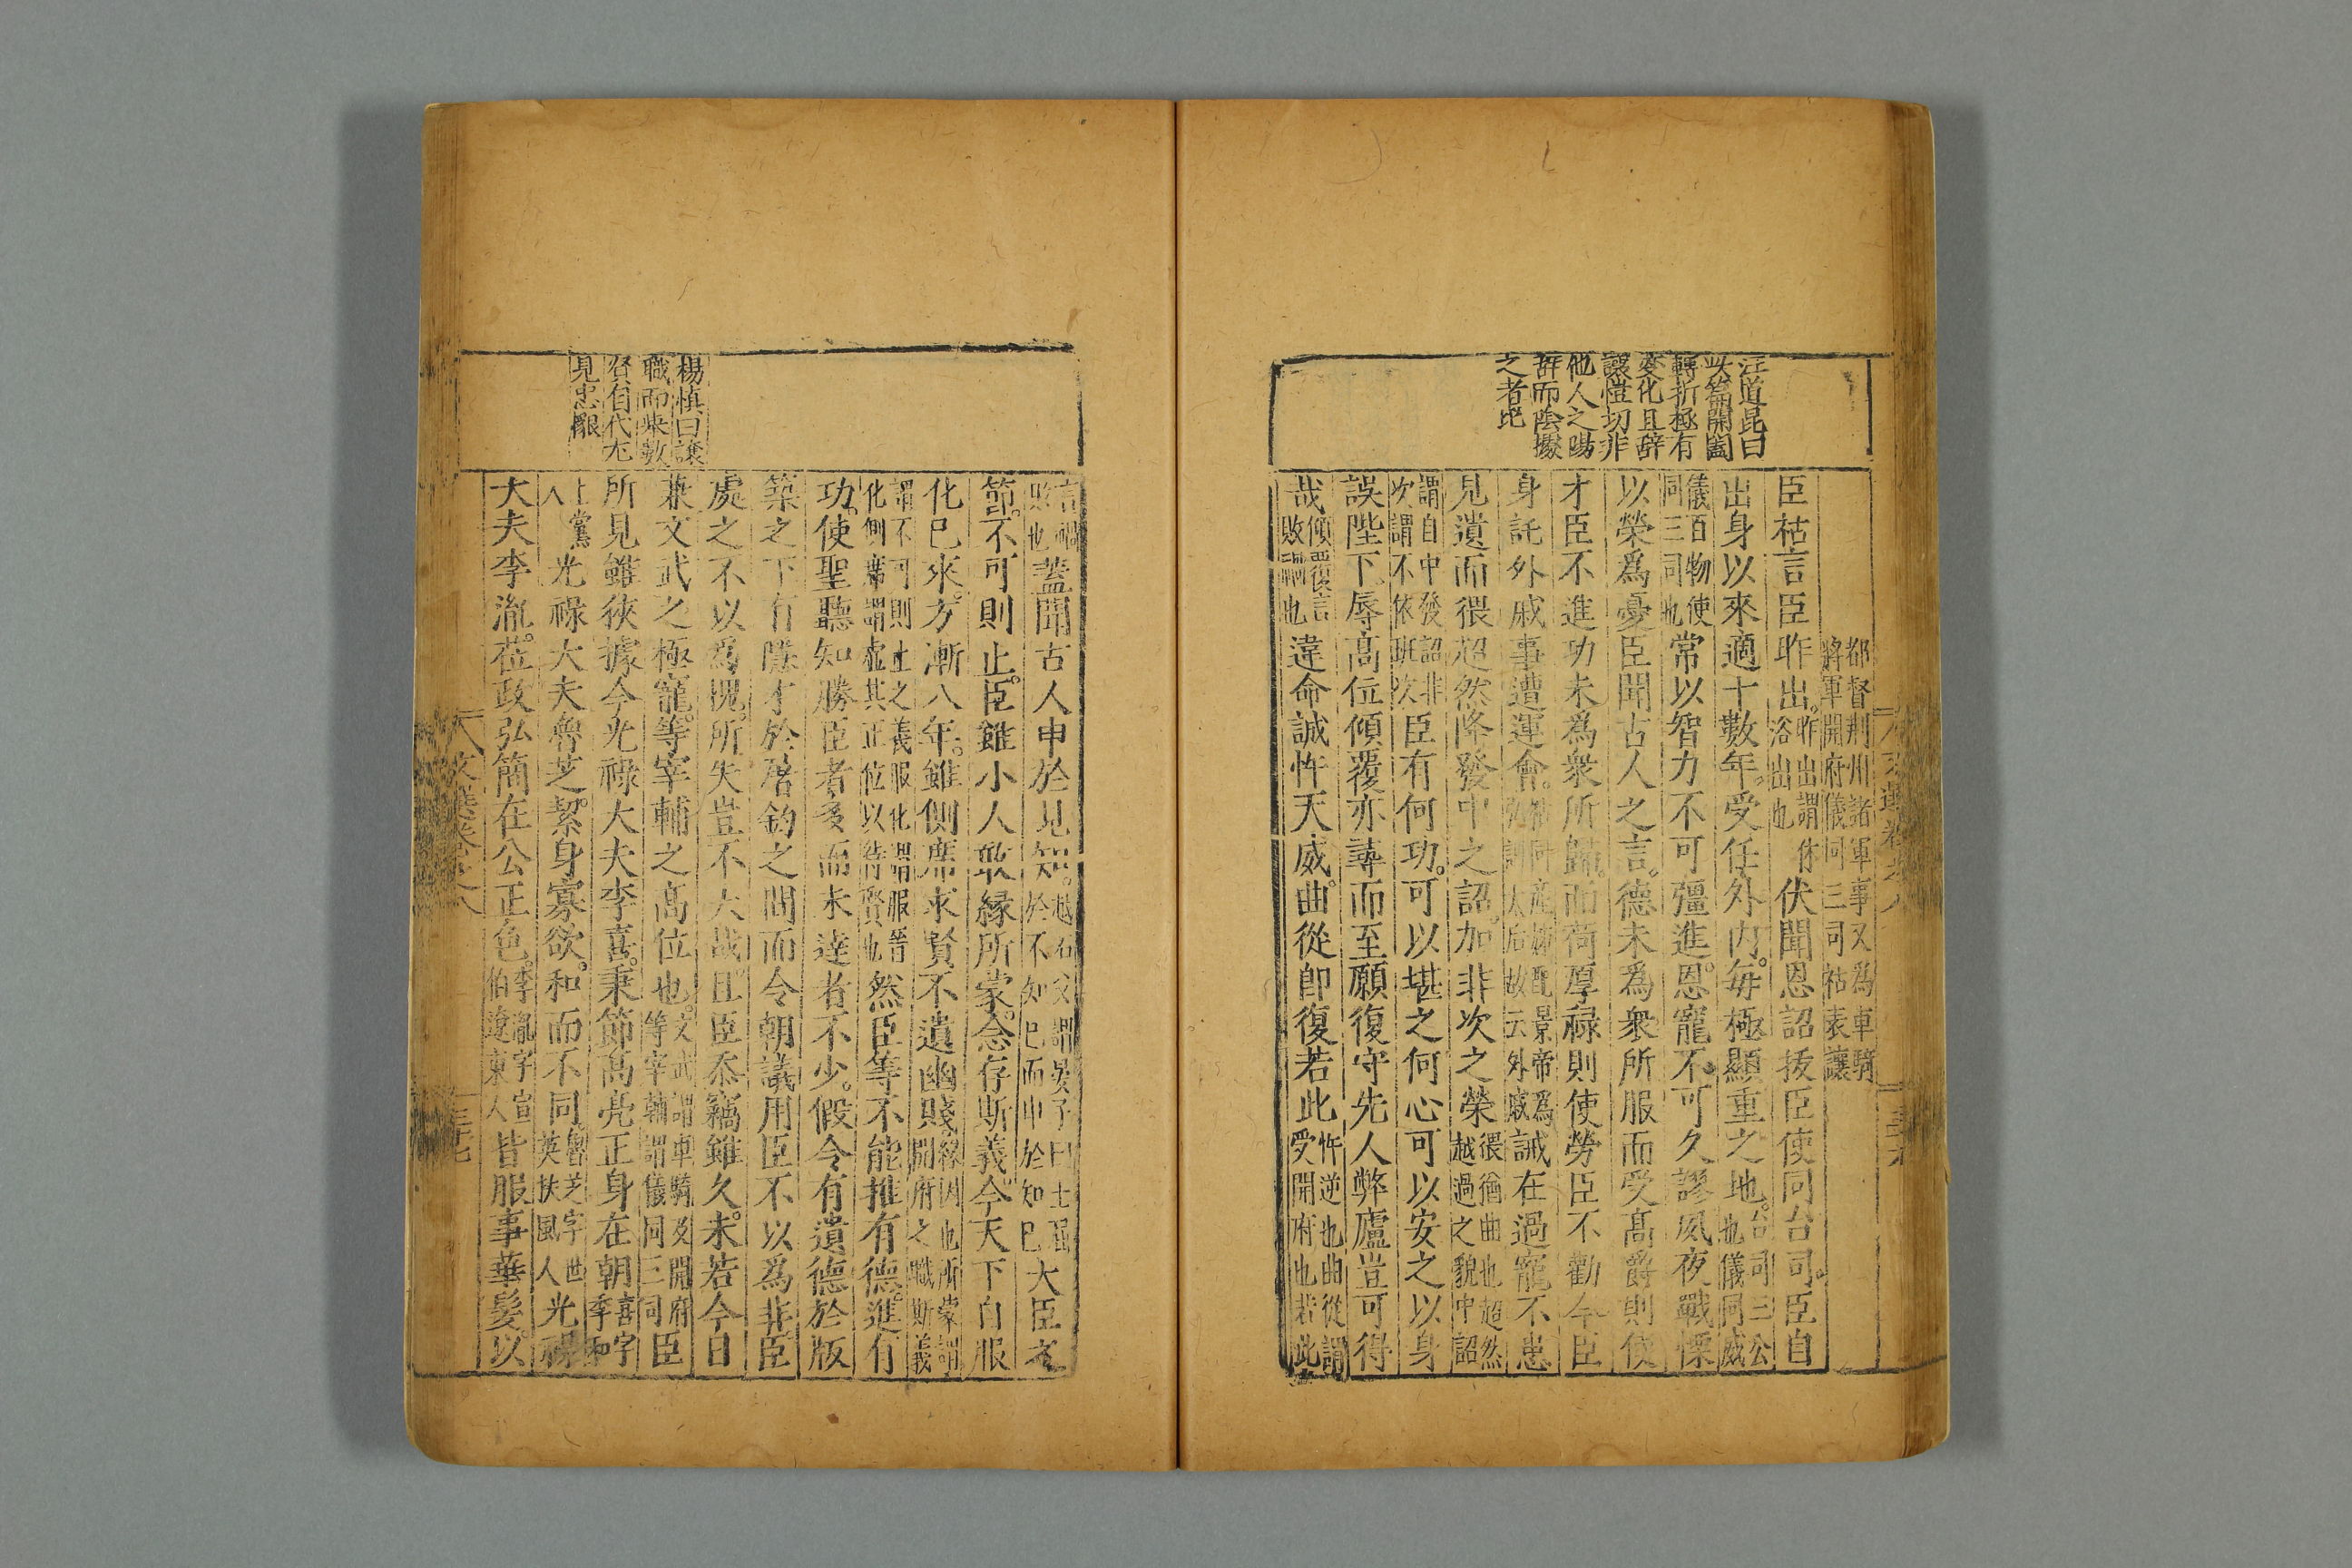 汪道昆曰
此篇開闔
轉折極有
變化且辭
讓愷切非
他人之陽
辭而陰據
之者比
都督荆州諸軍事又為車騎
將軍開府儀同三司祜表讓
臣祜言臣昨出昨出謂休浴出也伏聞恩詔拔臣使同台司臣自
出身以來適十數年受任外内毎極顯重之地台司三公也儀同威
儀百物使同三司也常以智力不可彊進恩寵不可久謬夙夜戰慄
以榮爲憂臣聞古人之言德未為衆所服而受髙爵則使
才臣不進功未爲衆所歸而荷厚禄則使勞臣不勸今臣
身託外戚事遭運會太后故云外戚誡在過寵不患
見遺而猥超然降發中之詔加非次之榮猥猶曲也超然越過之貌中詔
謂自中發詔非次謂不依班次臣有何功可以堪之何心可以安之以身
誤陛下辱髙位傾覆亦尋而至願復守先人弊廬豈可得
哉傾覆言敗禍也違命誠忤天威曲從即復若此忤逆也曲從謂受開府也若此
言禍敗也蓋聞古人申於見知越石父謂晏子曰士屈於不知已而申於知已大臣之
節不可則止臣雖小人敢緣所蒙念存斯義今天下自服
化已來方漸八年雖側席求賢不遺幽賤緣因也所蒙謂開府之職斯義
謂不可則止之義服化謂服晉化側席謂虛其正位以待賢也然臣等不能推有德進有
功使聖聽知勝臣者多而未達者不少假令有遺德於版
築之下有隱才於屠釣之間而令朝議用臣不以為非臣
處之不以爲愧所失豈不大哉且臣忝竊雖久未若今日
兼文武之極寵等宰輔之髙位也文武謂車騎及開府等宰輔謂儀同三司臣
所見雖狹據今光祿大夫李喜秉節髙亮正身在朝喜字季和
上黨人光祿大夫魯芝絜身寡欲和而不同魯芝字世英扶風人光祿
大夫李胤莅政弘簡在公正色李胤字宣伯遼東人皆服事華髮以
楊慎曰讓
職而來數
賢自代尤
見忠懇
文選卷之八